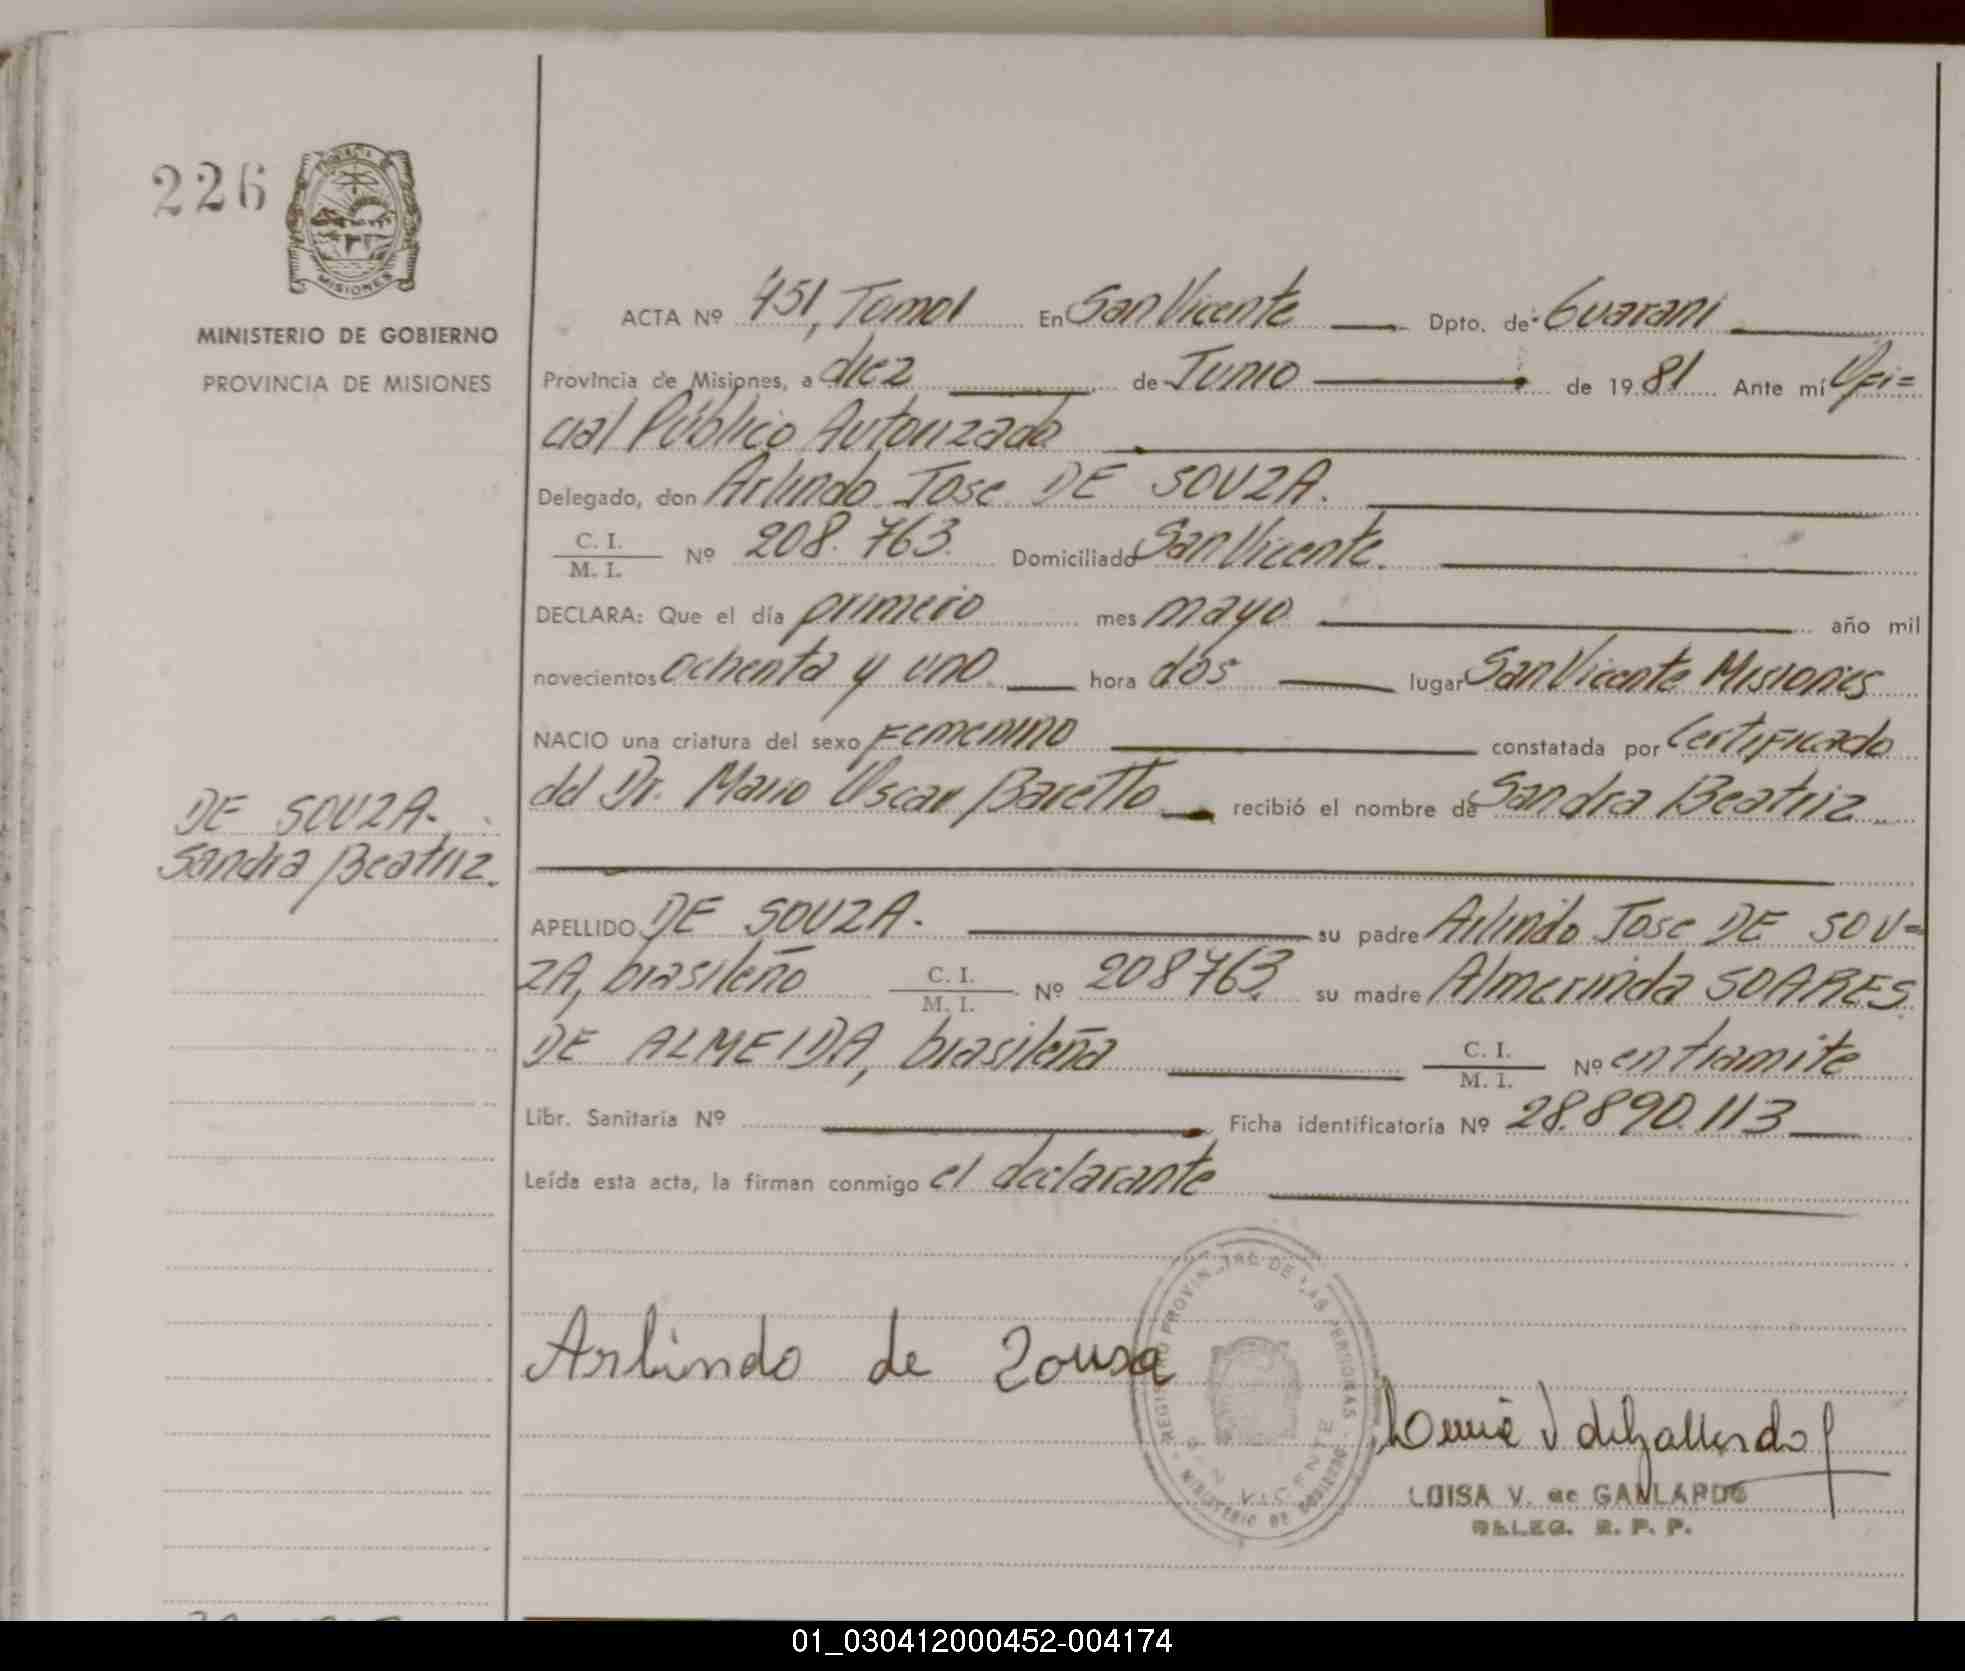 226
MISIONES
MINISTERIO DE GOBIERNO
PROVINCIA DE MISIONES
ACTA Nº 451, Tomo I En San Vicente Dpto. de Guarani
Provincia de Misiones, a diez de Junio de 1981 Ante mí Ofi=
cial Público Autorizado
Delegado, don Arlindo Jose DE SOUZA.
C. I.
M. I. Nº 208.763. Domiciliado San Vicente.
DECLARA: Que el día primero mes mayo año mil
novecientos ochenta y uno hora dos lugar San Vicente Misiones
NACIO una criatura del sexo Femenino constatada por Certificado
del Dr. Mario Oscar Baretto recibió el nombre de Sandra Beatriz
DE SOUZA.
Sandra Beatriz.
APELLIDO DE SOUZA. su padre Arlindo Jose DE SOU=
ZA, brasileño C. I.
M. I. Nº 208763 su madre Almerinda SOARES
DE ALMEIDA, brasileña C. I.
M. I. Nº en tramite
Libr. Sanitaria Nº Ficha identificatoria Nº 28.890.113
Leída esta acta, la firman conmigo el declarante
Arlindo de Sousa
REGISTRO PROVIN DE LAS PERSONAS
SAN VICENTE
MINISTERIO DE GOBIERNO
LUISA V. de GALLARDO
DELEG. R. P. P.
01_030412000452-004174